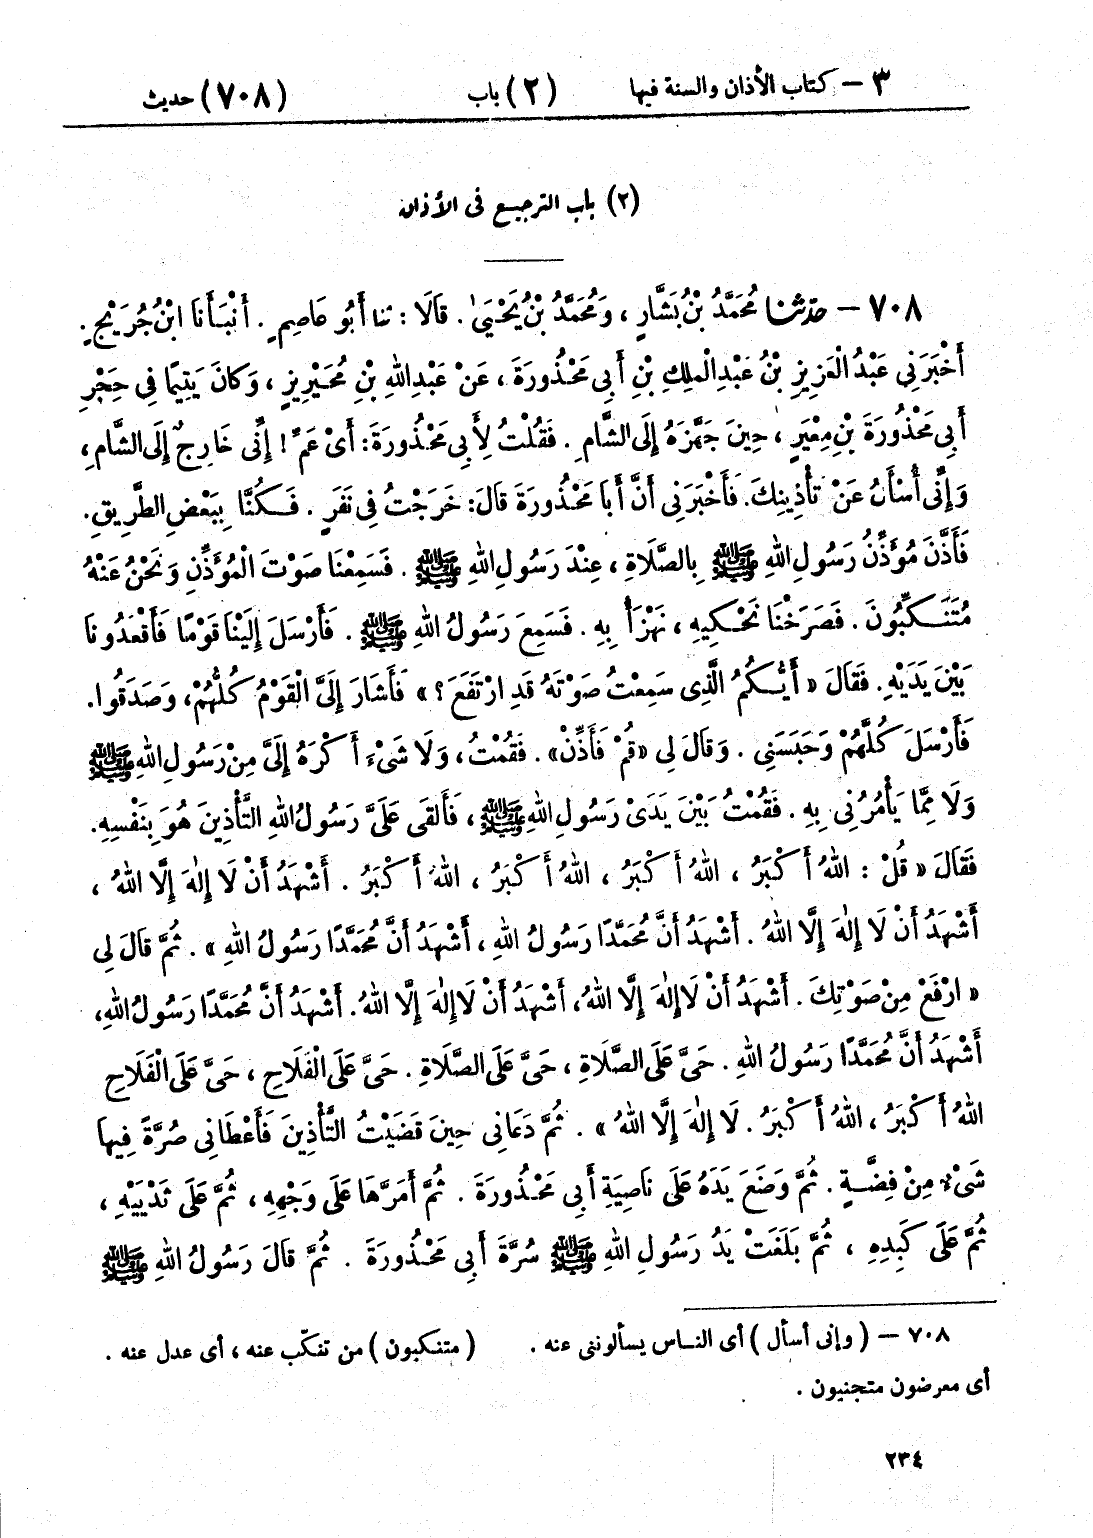 ٣ – كتاب الأذان والسنة فيها (٢) باب (٧٠٨) حديث
(٢) باب الترجيع فى الأذان
٧٠٨ – حدّثنا مُحَمَّدُ بْنُ بَشَّارٍ ، وَمُحَمَّدُ بْنُ يَحْيَىٰ . قَالَا : ثنا أَبُو عَاصِمٍ . أَنْبَأَنَا ابْنُ جُرَيْجٍ .
أَخْبَرَنِي عَبْدُ الْعَزِيزِ بْنُ عَبْدِ الْمَلِكِ بْنِ أَبِي مَحْذُورَةَ ، عَنْ عَبْدِ اللهِ بْنِ مُحَيْرِيزٍ ، وَكَانَ يَتِيمًا فِي حِجْرِ
أَبِي مَحْذُورَةَ بْنِ مِعْيَرٍ ، حِينَ جَهَّزَهُ إِلَى الشَّامِ . فَقُلْتُ لِأَبِي مَحْذُورَةَ : أَىْ عَمِّ ! إِنِّى خَارِجٌ إِلَى الشَّامِ ،
وَإِنِّى أُسْأَلُ عَنْ تَأْذِينِكَ . فَأَخْبَرَنِي أَنَّ أَبَا مَحْذُورَةَ قَالَ : خَرَجْتُ فِي نَفَرٍ . فَكُنَّا بِبَعْضِ الطَّرِيقِ .
فَأَذَّنَ مُؤَذِّنُ رَسُولِ اللهِ ﷺ بِالصَّلَاةِ ، عِنْدَ رَسُولِ اللهِ ﷺ . فَسَمِعْنَا صَوْتَ الْمُؤَذِّنِ وَنَحْنُ عَنْهُ
مُتَنَكِّبُونَ . فَصَرَخْنَا نَحْكِيهِ ، نَهْزَأُ بِهِ . فَسَمِعَ رَسُولُ اللهِ ﷺ . فَأَرْسَلَ إِلَيْنَا قَوْمًا فَأَقْعَدُونَا
بَيْنَ يَدَيْهِ . فَقَالَ « أَيُّكُمُ الَّذِى سَمِعْتُ صَوْتَهُ قَدِ ارْتَفَعَ ؟ » فَأَشَارَ إِلَىَّ الْقَوْمُ كُلُّهُمْ ، وَصَدَقُوا .
فَأَرْسَلَ كُلَّهُمْ وَحَبَسَنِي . وَقَالَ لِي « قُمْ فَأَذِّنْ » . فَقُمْتُ ، وَلَا شَىْءَ أَكْرَهُ إِلَىَّ مِنْ رَسُولِ اللهِ ﷺ
وَلَا مِمَّا يَأْمُرُنِي بِهِ . فَقُمْتُ بَيْنَ يَدَىْ رَسُولِ اللهِ ﷺ ، فَأَلْقَى عَلَىَّ رَسُولُ اللهِ التَّأْذِينَ هُوَ بِنَفْسِهِ .
فَقَالَ « قُلْ : اللهُ أَكْبَرُ ، اللهُ أَكْبَرُ ، اللهُ أَكْبَرُ ، اللهُ أَكْبَرُ . أَشْهَدُ أَنْ لَا إِلٰهَ إِلَّا اللهُ ،
أَشْهَدُ أَنْ لَا إِلٰهَ إِلَّا اللهُ . أَشْهَدُ أَنَّ مُحَمَّدًا رَسُولُ اللهِ ، أَشْهَدُ أَنَّ مُحَمَّدًا رَسُولُ اللهِ » . ثُمَّ قَالَ لِي
« ارْفَعْ مِنْ صَوْتِكَ . أَشْهَدُ أَنْ لَا إِلٰهَ إِلَّا اللهُ ، أَشْهَدُ أَنْ لَا إِلٰهَ إِلَّا اللهُ . أَشْهَدُ أَنَّ مُحَمَّدًا رَسُولُ اللهِ ،
أَشْهَدُ أَنَّ مُحَمَّدًا رَسُولُ اللهِ . حَىَّ عَلَى الصَّلَاةِ ، حَىَّ عَلَى الصَّلَاةِ . حَىَّ عَلَى الْفَلَاحِ ، حَىَّ عَلَى الْفَلَاحِ
اللهُ أَكْبَرُ ، اللهُ أَكْبَرُ . لَا إِلٰهَ إِلَّا اللهُ » . ثُمَّ دَعَانِي حِينَ قَضَيْتُ التَّأْذِينَ فَأَعْطَانِي صُرَّةً فِيهَا
شَىْءٌ مِنْ فِضَّةٍ . ثُمَّ وَضَعَ يَدَهُ عَلَى نَاصِيَةِ أَبِي مَحْذُورَةَ . ثُمَّ أَمَرَّهَا عَلَى وَجْهِهِ ، ثُمَّ عَلَى ثَدْيَيْهِ ،
ثُمَّ عَلَى كَبِدِهِ ، ثُمَّ بَلَغَتْ يَدُ رَسُولِ اللهِ ﷺ سُرَّةَ أَبِي مَحْذُورَةَ . ثُمَّ قَالَ رَسُولُ اللهِ ﷺ
٧٠٨ – ( وإنى أسأل ) أى الناس يسألوننى عنه . ( متنكبون ) من تنكّب عنه ، أى عدل عنه .
أى معرضون متجنبون .
٢٣٤